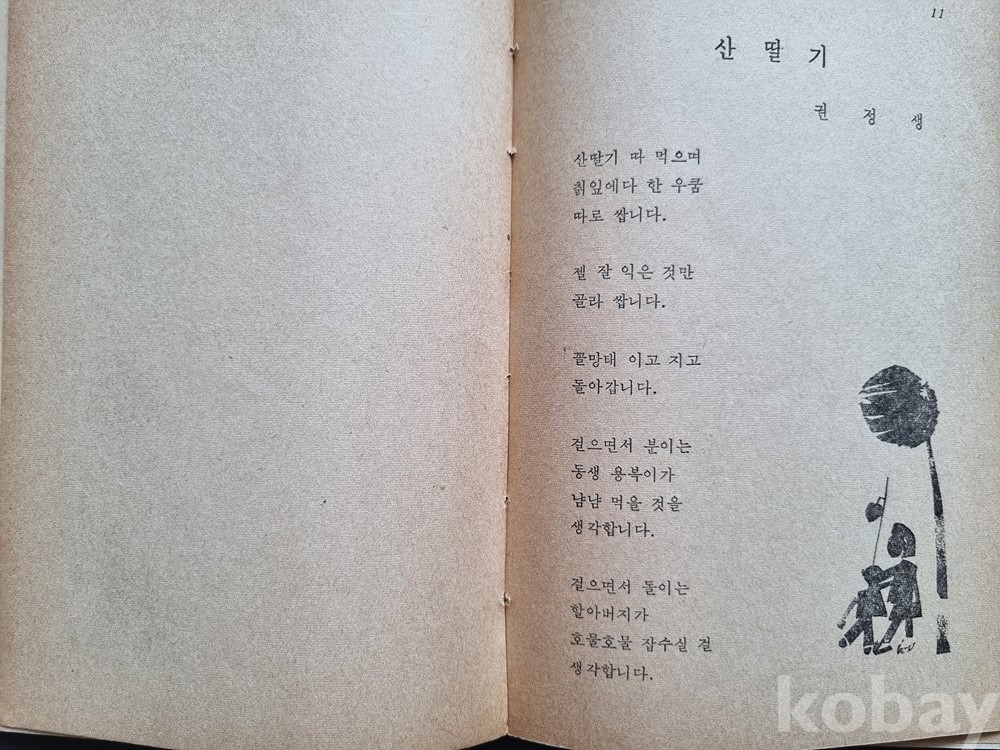 11
산 딸 기
권 정 생
산딸기 따 먹으며
칡잎에다 한 우쿰
따로 쌉니다.
젤 잘 익은 것만
골라 쌉니다.
꼴망태 이고 지고
돌아갑니다.
걸으면서 분이는
동생 용복이가
냠냠 먹을 것을
생각합니다.
걸으면서 돌이는
할아버지가
호물호물 잡수실 걸
생각합니다.
kobay